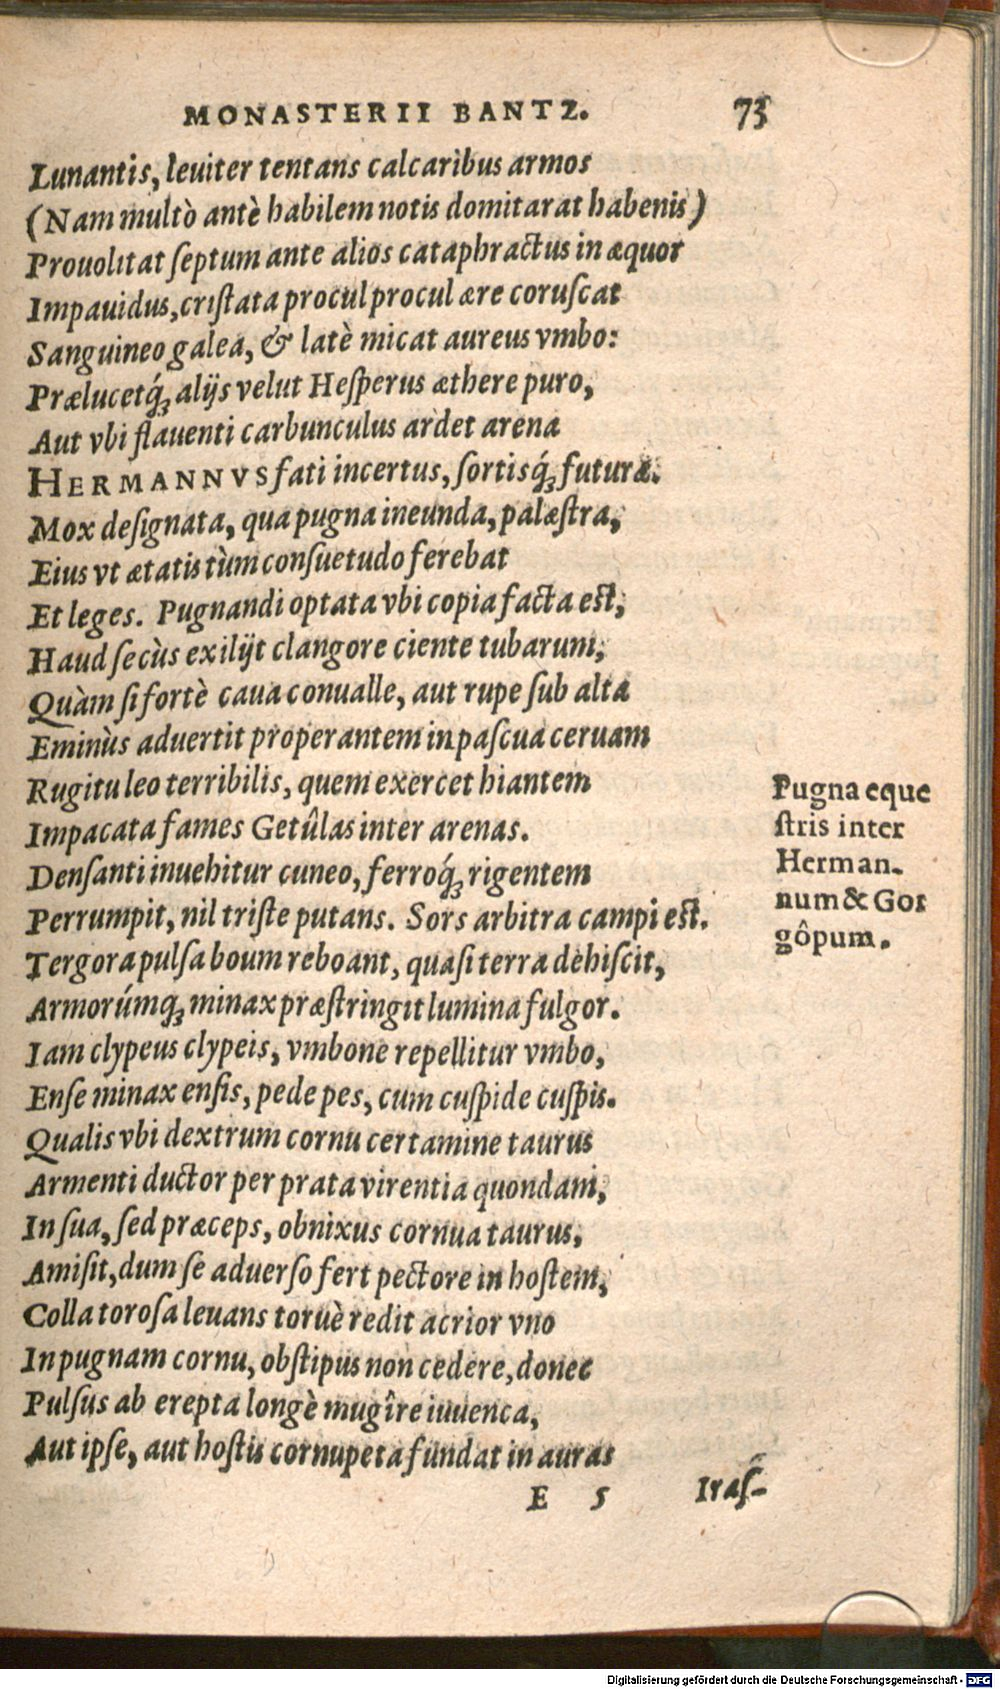 MONASTERII BANTZ. 73
Lunantis, leuiter tentans calcaribus armos
(Nam multò antè habilem notis domitarat habenis)
Prouolitat ſeptum ante alios cataphractus in æquor
Impauidus, criſtata procul procul ære coruſcat
Sanguineo galea, & latè micat aureus vmbo:
Prælucetq́ꝫ alijs velut Heſperus æthere puro,
Aut vbi flauenti carbunculus ardet arena
HERMANNVS fati incertus, ſortisq́ꝫ futuræ.
Mox deſignata, qua pugna ineunda, palæſtra,
Eius vt ætatis tùm conſuetudo ferebat
Et leges. Pugnandi optata vbi copia facta eſt,
Haud ſecùs exilijt clangore ciente tubarum,
Quàm ſi fortè caua conualle, aut rupe ſub alta
Eminùs aduertit properantem in paſcua ceruam
Rugitu leo terribilis, quem exercet hiantem
Impacata fames Getûlas inter arenas.
Denſanti inuehitur cuneo, ferroq́ꝫ rigentem
Perrumpit, nil triſte putans. Sors arbitra campi eſt.
Tergora pulſa boum reboant, quaſi terra dehiſcit,
Armorúmqꝫ minax præſtringit lumina fulgor.
Iam clypeus clypeis, vmbone repellitur vmbo,
Enſe minax enſis, pede pes, cum cuſpide cuſpis.
Qualis vbi dextrum cornu certamine taurus
Armenti ductor per prata virentia quondam,
In ſua, ſed præceps, obnixus cornua taurus,
Amiſit, dum ſe aduerſo fert pectore in hoſtem,
Colla toroſa leuans toruè redit acrior vno
In pugnam cornu, obſtipus non cedere, donec
Pulſus ab erepta longè mugîre iuuenca,
Aut ipſe, aut hoſtis cornupeta fundat in auras
E 5 Iraſ-
Pugna eque
ſtris inter
Herman-
num & Gor
gôpum.
Digitalisierung gefördert durch die Deutsche Forschungsgemeinschaft - DFG